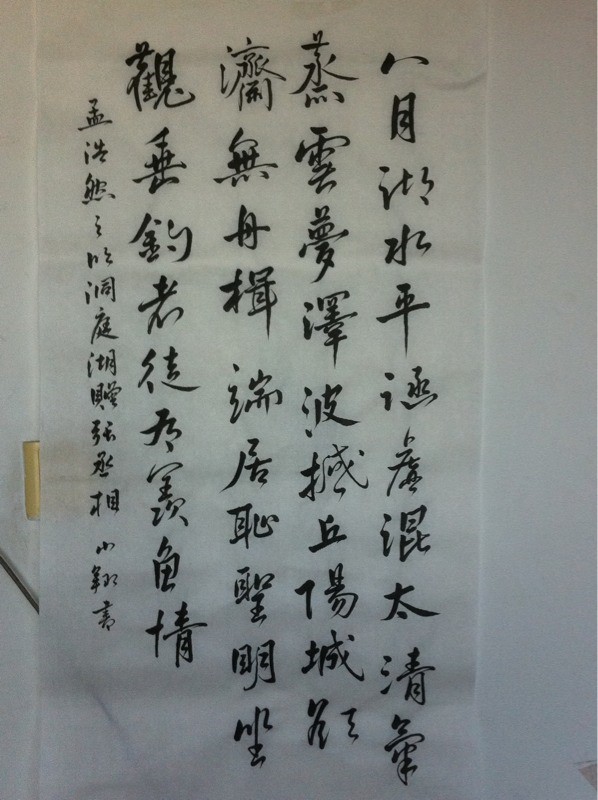 八月湖水平涵虛混太清氣
蒸雲夢澤波撼丘陽城欲
濟無舟楫端居恥聖明坐
觀垂釣者徒有羨魚情
孟浩然之咏洞庭湖贈張丞相 小翔書